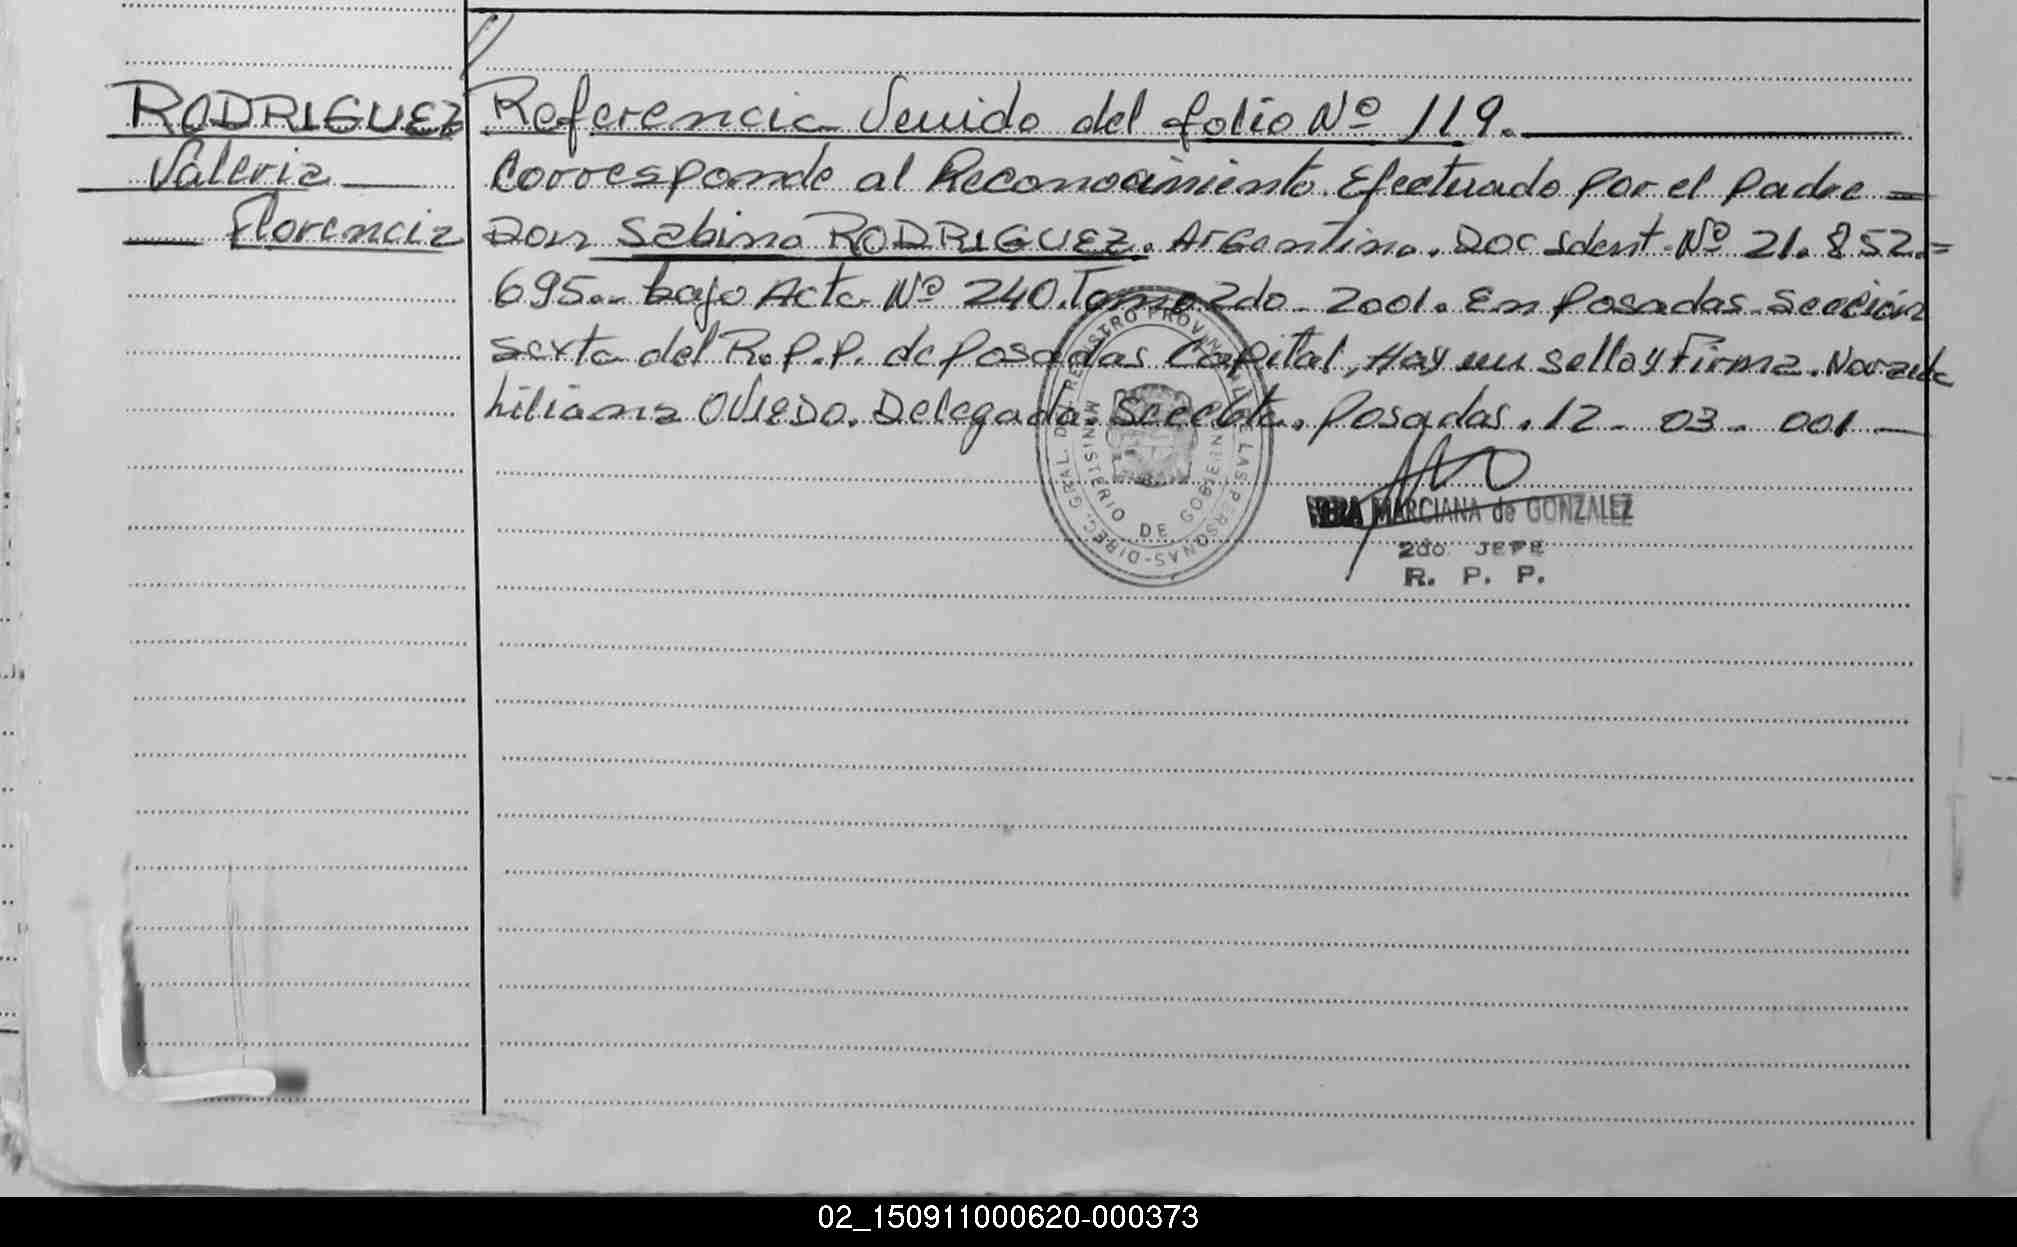 RODRIGUEZ
Valeria
Florencia
Referencia Venido del folio Nº 119.
Corresponde al Reconocimiento Efectuado por el padre =
Don Sabino RODRIGUEZ. Argentino. Doc Ident. Nº 21.852.=
695.- bajo Acta Nº 240. Tomo 2do - 2001. En Posadas Sección
sexta del R.P.P. de Posadas Capital, Hay un sello y Firma.
Liliana OVIEDO. Delegada. Posadas. 12 - 03 - 001 -
DIREC. GRAL. DEL REGISTRO PROVINCIAL DE LAS PERSONAS
MINISTERIO DE GOBIERNO
MARCIANA de GONZALEZ
2do JEFE
R. P. P.
02_150911000620-000373